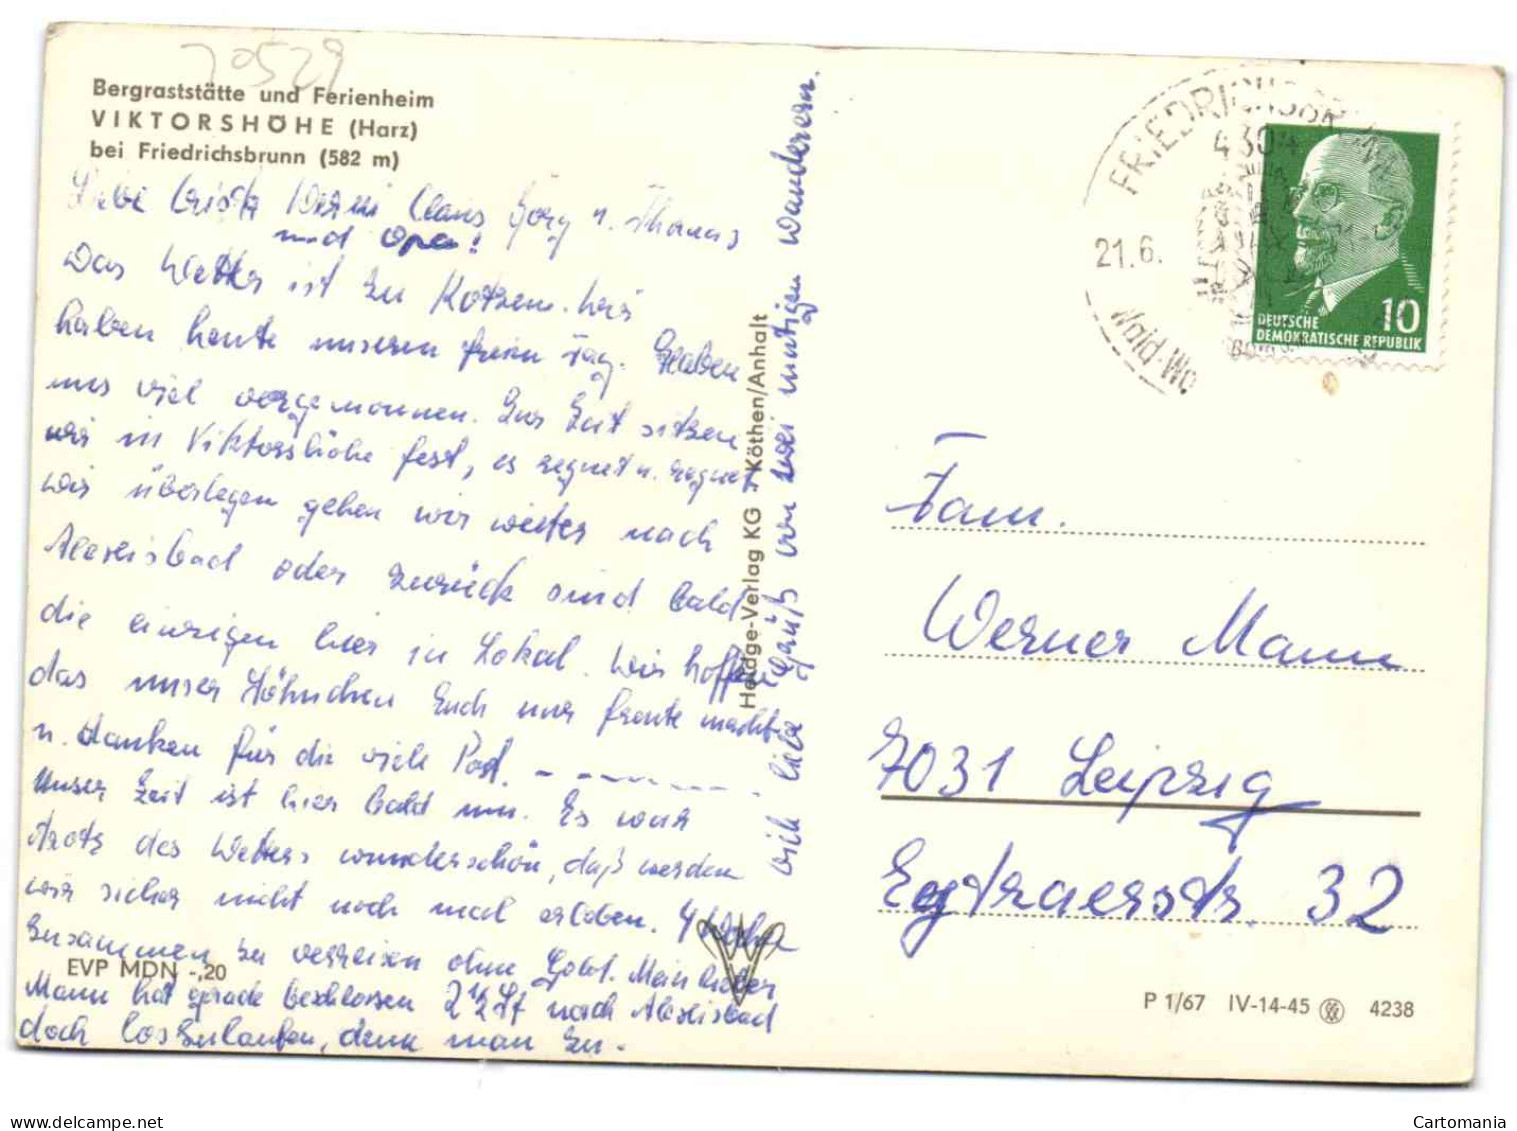 70529
Bergraststätte und Ferienheim
VIKTORSHÖHE (Harz)
bei Friedrichsbrunn (582 m)
Liebe Crista Werni Claus Jörg u. Thomas
und Opa!
Das Wetter ist zu Kotzen. Wir
haben heute unseren freien Tag. Haben
uns viel vorgenommen. Zur Zeit sitzen
wir in Viktorshöhe fest, es regnet u. regnet
wir überlegen gehen wir weiter nach
Alexisbad oder zurück sind bald
die einzigen hier im Lokal. Wir hoffen
das unser Hähnchen Euch nur freute machte
u. danken für die viele Post. - - - - - -
Unser Zeit ist hier bald um. Es war
trotz des Wetters wunderschön, daß werden
wir sicher nicht noch mal erleben. 4 Wochen
zusammen zu verreisen ohne Geld. Mein lieber
Mann hat gerade beschlossen 2 1/2 St nach Alexisbad
doch loszulaufen, denn man zu.
viele liebe Grüße von zwei mutigen Wanderern.
EVP MDN -,20
Heldge-Verlag KG • Köthen/Anhalt
FRIEDRICHSBRUNN
4304
21.6.
Wald-
10
DEUTSCHE
DEMOKRATISCHE REPUBLIK
Fam.
Werner Mann
7031 Leipzig
32
P 1/67 IV-14-45 4238
Cartomania
delcampe.net